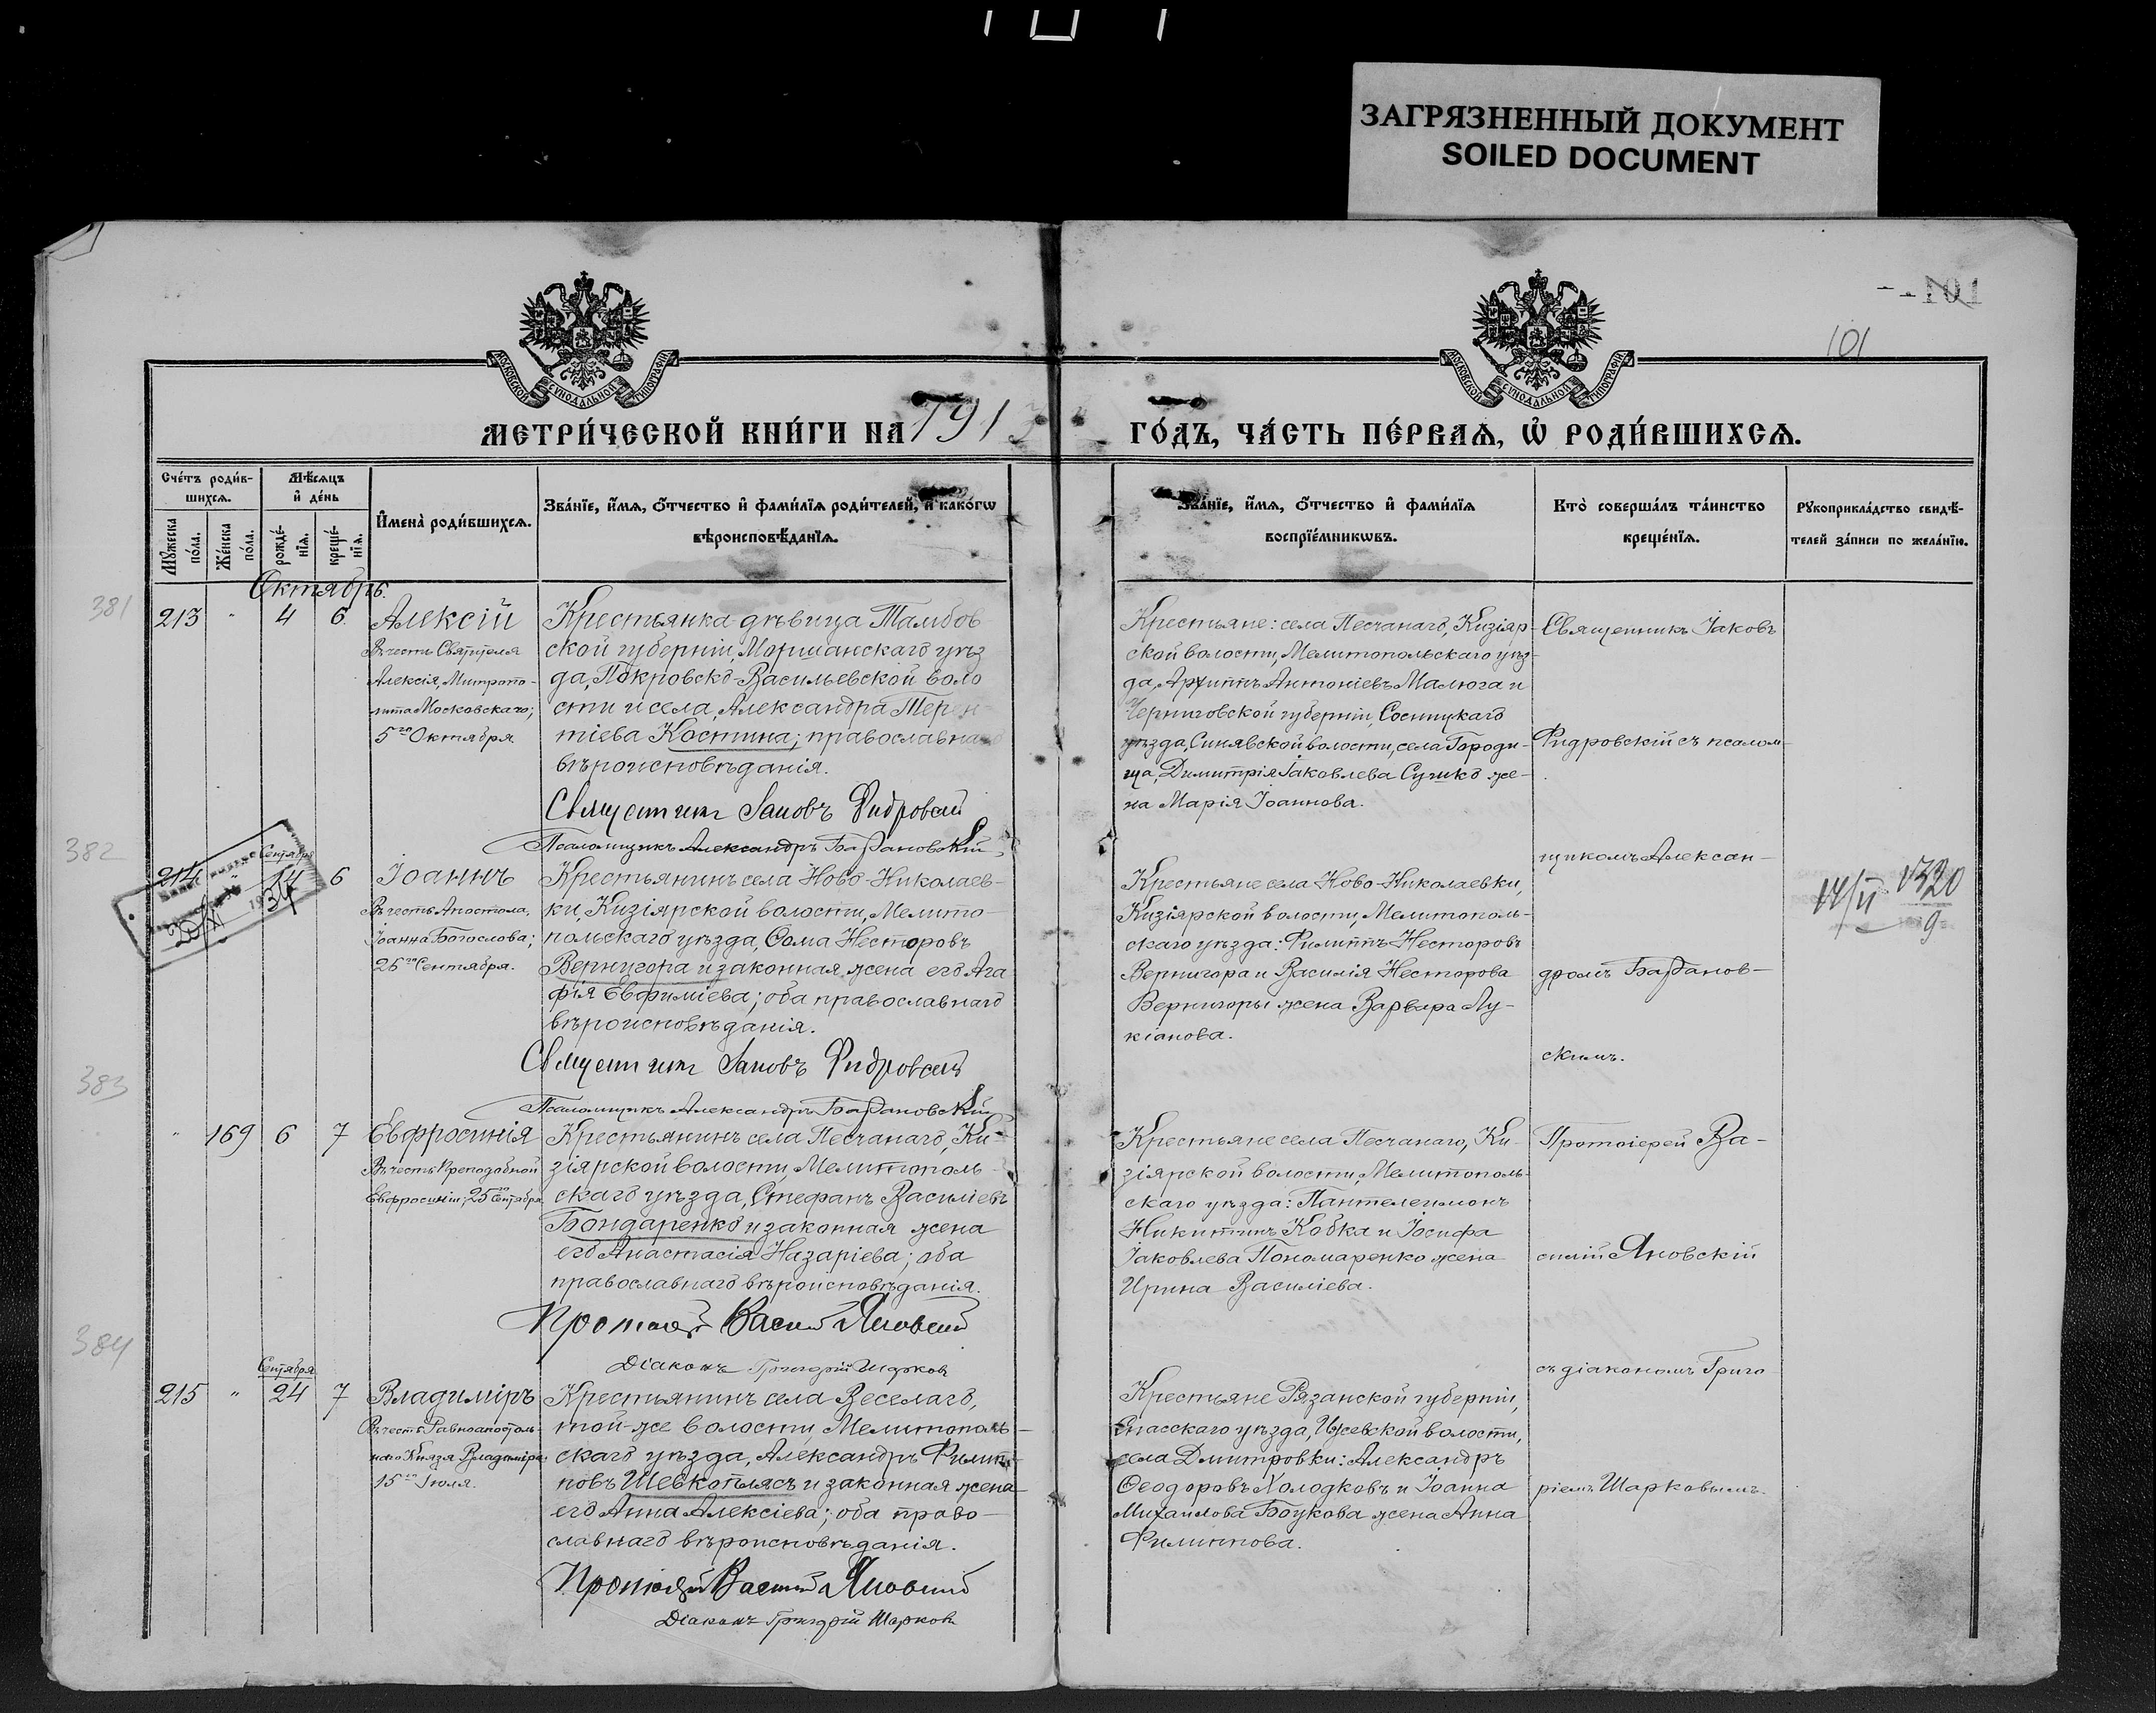 ЗАГРЯЗНЕННЫЙ ДОКУМЕНТ
SOILED DOCUMENT
101
101
МОСКОВСКОЙ СѴНОДАЛЬНОЙ ТИПОГРАФІИ
МОСКОВСКОЙ СѴНОДАЛЬНОЙ ТИПОГРАФІИ
МЕТРИ́ЧЕСКОЙ КНИ́ГИ НА 1913 ГО́ДЪ, ЧА́СТЬ ПЕ́РВАѦ, Ѡ҆ РОДИ́ВШИХСѦ.
Сче́тъ роди́в-
шихсѧ.
Мꙋжеска по́ла.
Же́нска по́ла.
Мѣ́сѧцъ
и҆ де́нь
рожде́-
нїѧ.
креще́-
нїѧ.
И҆мена̀ роди́вшихсѧ.
Зва́нїе, и҆́мѧ, ѻ҆́тчество и҆ фами́лїѧ роди́телей, и҆ како́гѡ
вѣроисповѣ́данїѧ.
Зва́нїе, и҆́мѧ, ѻ҆́тчество и҆ фами́лїѧ
воспрїе́мникѡвъ.
Кто̀ соверша́лъ та́инство
креще́нїѧ.
Рꙋкоприкла́дство свидѣ́-
телей за́писи по жела́нїю.
Октябрь.
381
213 " 4 6.
Алексій
Въ честь Святителя
Алексія, Митропо-
лита Московскаго;
5го Октября
Крестьянка-дѣвица Тамбов
ской губерніи, Моршанскаго уѣз
да, Покровско-Васильевской воло
сти и села, Александра Терен-
тіева Костина; православнаго
вѣроисповѣданія.
Священникъ Іаковъ Фидровскій
Псаломщикъ Александръ Баздановскій
Крестьяне: села Песчанаго, Кизіяр-
ской волости, Мелитопольскаго уѣз-
да, Архиппъ Антоніевъ Малюга и
Черниговской губерніи, Сосницкаго
уѣзда, Синявской волости, села Городи-
ща, Димитрія Іаковлева Сучико же-
на Марія Іоаннова.
Священникъ Іаковъ
Фидровскій съ псалом-
щикомъ Алексан-
дромъ Баздановскимъ
382
Сентября
214 " 14 6
20/XI 1937
Іоаннъ
Въ честь Апостола,
Іоанна Богослова;
26го Сентября.
Крестьянинъ села Ново-Николаев-
ки, Кизіярской волости, Мелито-
польскаго уѣзда, Ѳома Несторовъ
Вернигора и законная жена его Ага
фія Евфиміева; оба православнаго
вѣроисповѣданія.
Священникъ Іаковъ Фидровскій
Псаломщикъ Александръ Баздановскій
Крестьяне села Ново-Николаевки,
Кизіярской волости, Мелитополь-
скаго уѣзда: Филиппъ Несторовъ
Вернигора и Василія Несторова
Вернигоры жена Варвара Лу-
кіанова.
14/II 1320
9
383
" 169 6 7
Евфросинія
Въ честь Преподобной
Евфросиніи; 25го Сентября.
Крестьянинъ села Песчанаго, Ки-
зіярской волости, Мелитополь-
скаго уѣзда, Стефанъ Василіевъ
Бондаренко и законная жена
его Анастасія Назаріева; оба
православнаго вѣроисповѣданія.
Протоіерей Василій Яновскій
Діаконъ Григорій Шарковъ
Крестьяне села Песчанаго, Ки-
зіярской волости, Мелитополь-
скаго уѣзда: Пантелеимонъ
Никитинъ Кобка и Іосифа
Іаковлева Пономаренко жена
Ирина Василіева.
Протоіерей Ва-
силій Яновскій
съ діакономъ Григо
ріемъ Шарковымъ.
384
Сентября
215 " 24 7
Владиміръ
Въ честь Равноапостоль-
наго Князя Владиміра;
15го Іюля.
Крестьянинъ села Веселаго,
той-же волости, Мелитополь-
скаго уѣзда, Александръ Филип-
повъ Шевкоплясъ и законная жена
его Анна Алексіева; оба право-
славнаго вѣроисповѣданія.
Протоіерей Василій Яновскій
Діаконъ Григорій Шарковъ
Крестьяне Рязанской губерніи,
Спасскаго уѣзда, Ижевской волости,
села Дмитровки: Александръ
Ѳеодоровъ Холодковъ и Іоанна
Михаилова Боукова жена Анна
Филиппова.